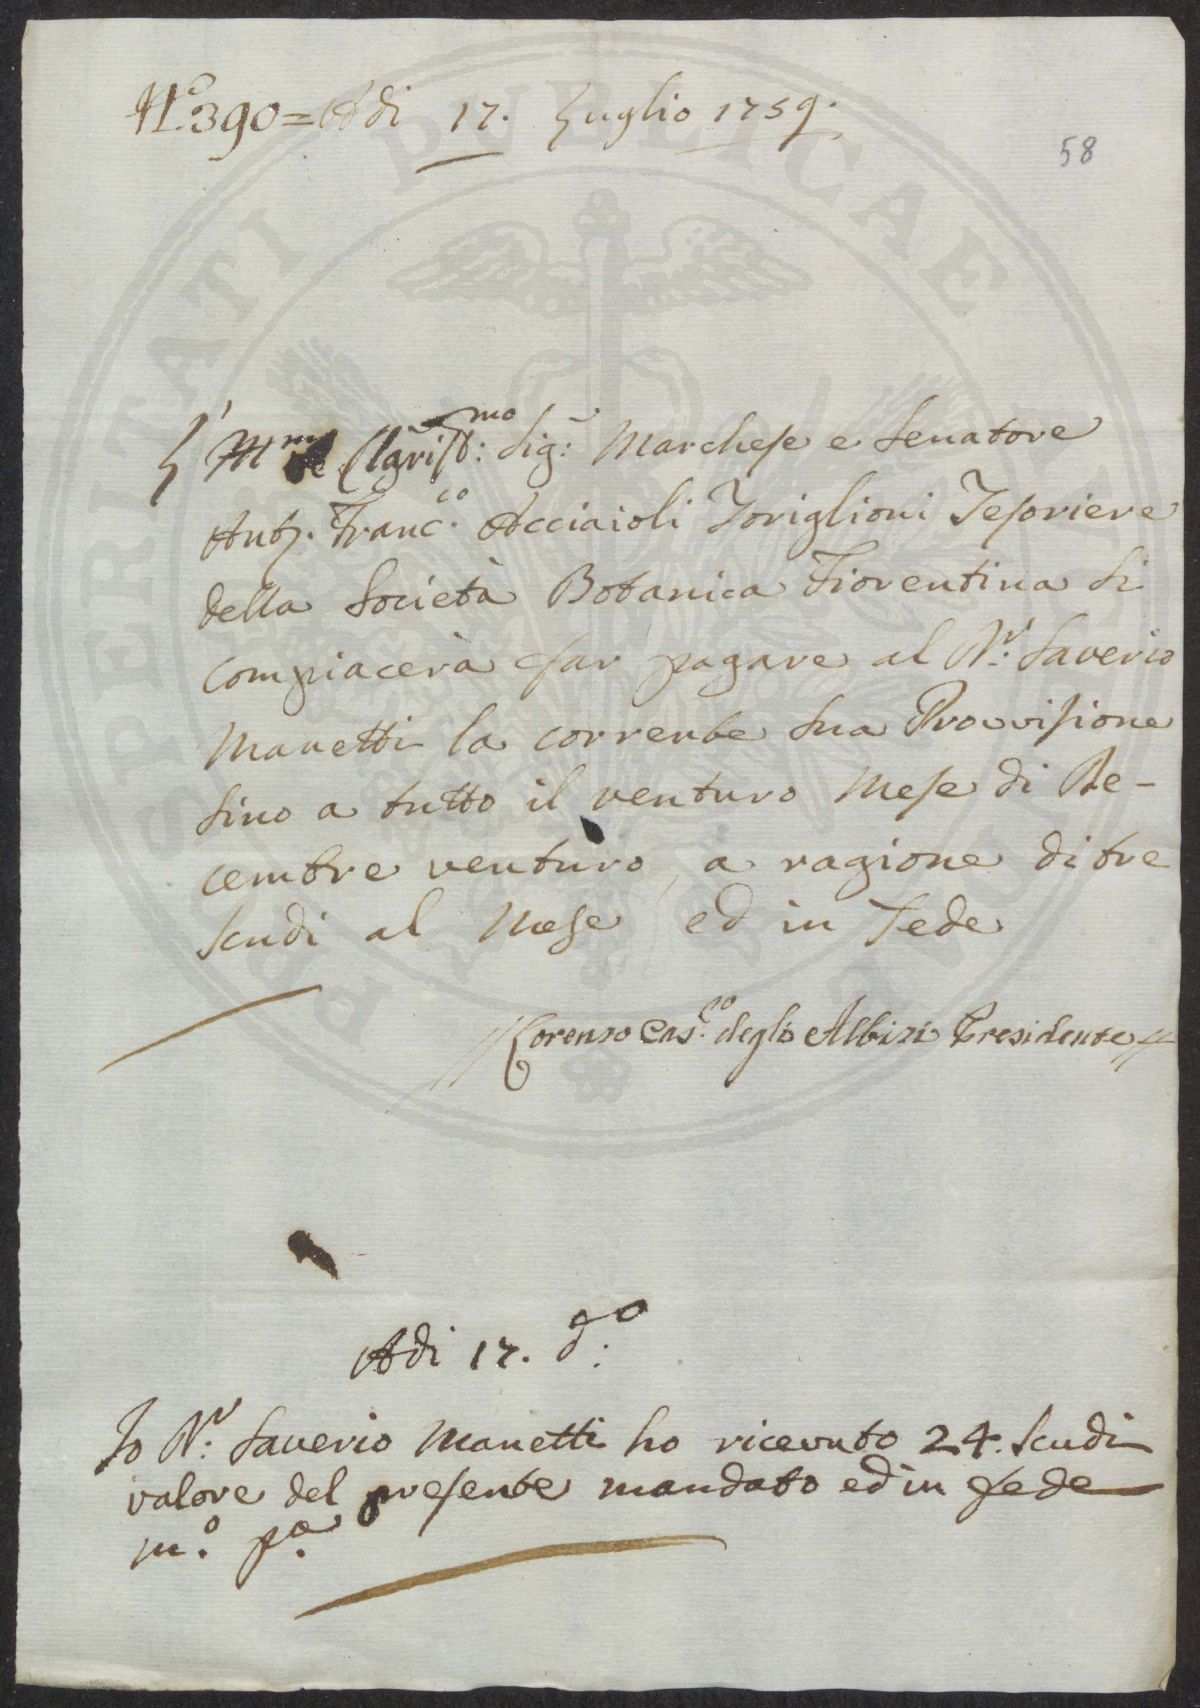 N.° 390 = Adi 17. Luglio 1759.
58
L' Ill.mo Clariss:mo Sig: Marchese e Senatore
Ant. Franc.co Acciaioli Toriglioni Tesoriere
della Società Botanica Fiorentina si
compiacerà far pagare al D.r: Saverio
Manetti la corrente sua Provvisione
sino a tutto il venturo Mese di De-
cembre venturo, a ragione di tre
scudi al Mese ed in fede
Lorenzo Cas.co degli Albizi Presidente
Adi 17. d.o:
Io D.r: Saverio Manetti ho ricevuto 24. Scudi
valore del presente mandato ed in fede
m.o p.a
PROSPERITATI PUBLICAE